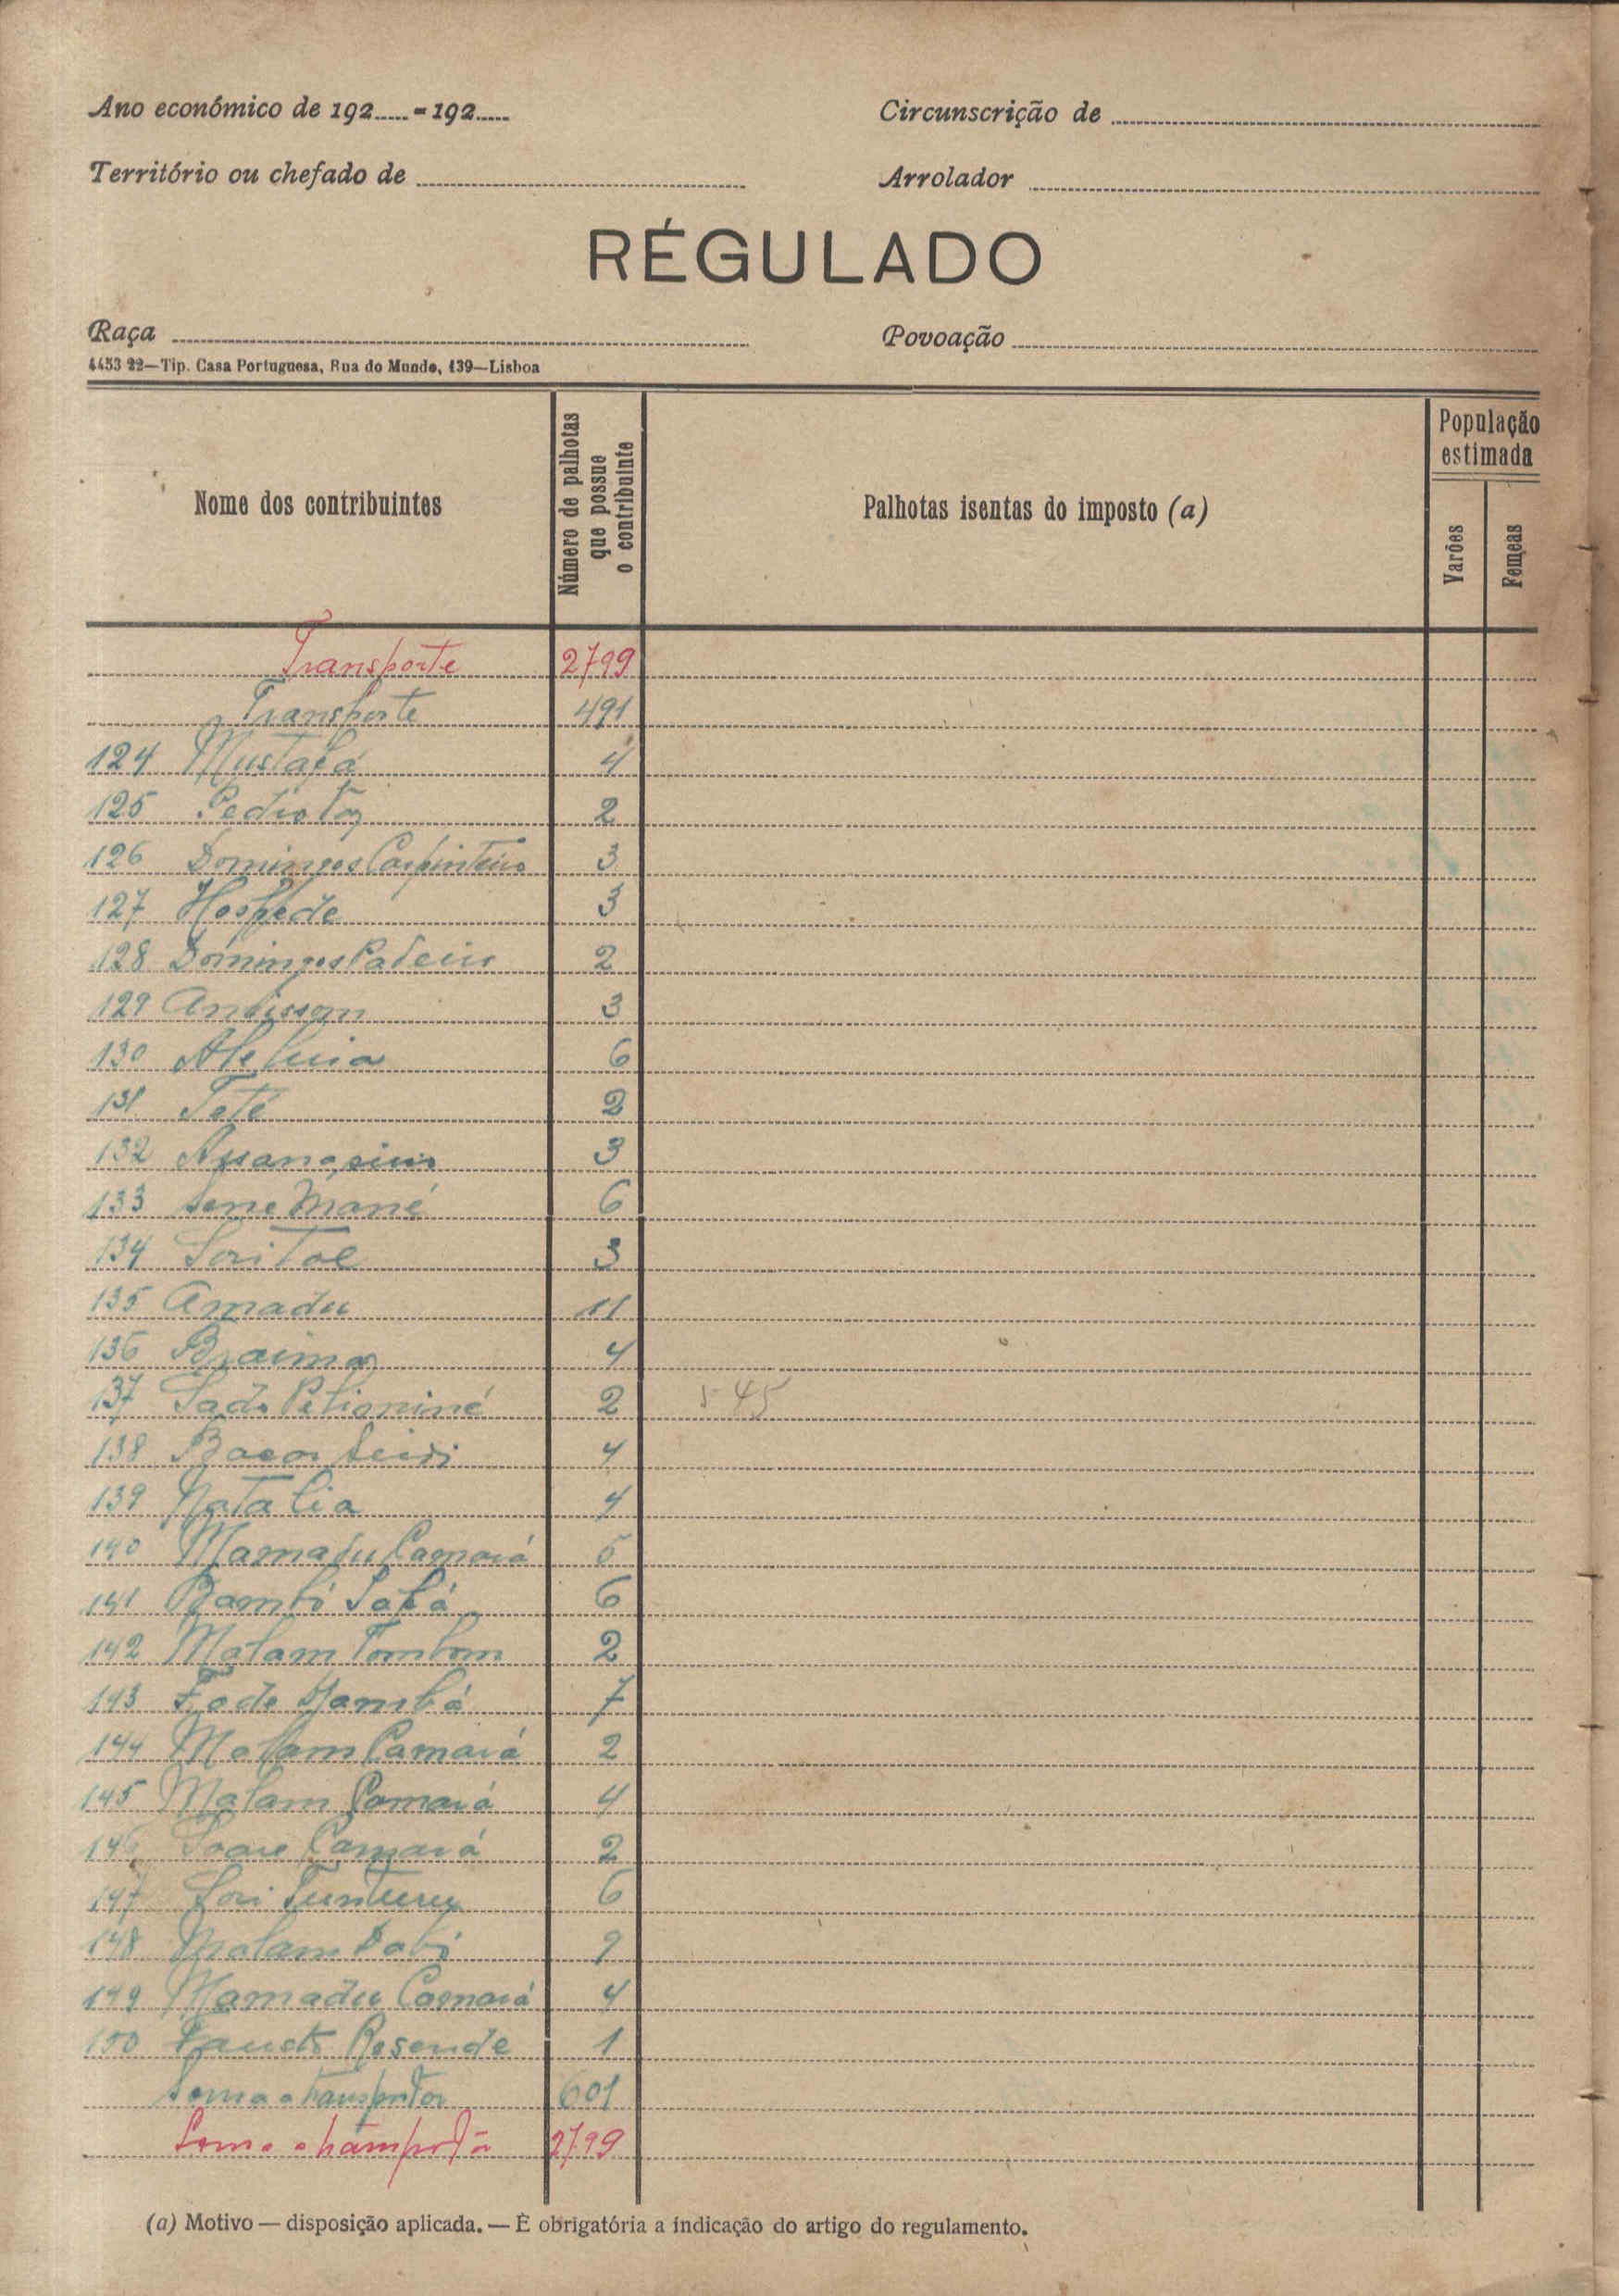 Ano económico de 192.....-192.....
Circunscrição de
Território ou chefado de
Arrolador
RÉGULADO
Raça
Povoação
4453 22—Tip. Casa Portuguesa, Rua do Mundo, 139—Lisboa
Nome dos contribuintes
Número de palhotas
que possue
o contribuinte
Palhotas isentas do imposto (a)
População
estimada
Varões
Femeas
Transporte 2799
Transporte 491
124 Mustafá 4
125 2
126 Domingos Carpinteiro 3
127 Hospede 3
128 Domingos Padeiro 2
129 3
130 Aleluia 6
131 Teté 2
132 3
133 Sene Mané 6
134 Sori 3
135 Amadu 11
136 Braima 4
137 2 45
138 Bacar Seidi 4
139 Natalia 4
140 Mamadu Camará 5
141 6
142 Malam 2
143 Fode 7
144 Malam Camará 2
145 Malam Camará 4
146 Camará 2
147 Sori 6
148 Malam 2
149 Mamadu Camará 4
150 Fausto Resende 1
Soma a transportar 601
Soma a transportar 2799
(a) Motivo — disposição aplicada. — É obrigatória a indicação do artigo do regulamento.